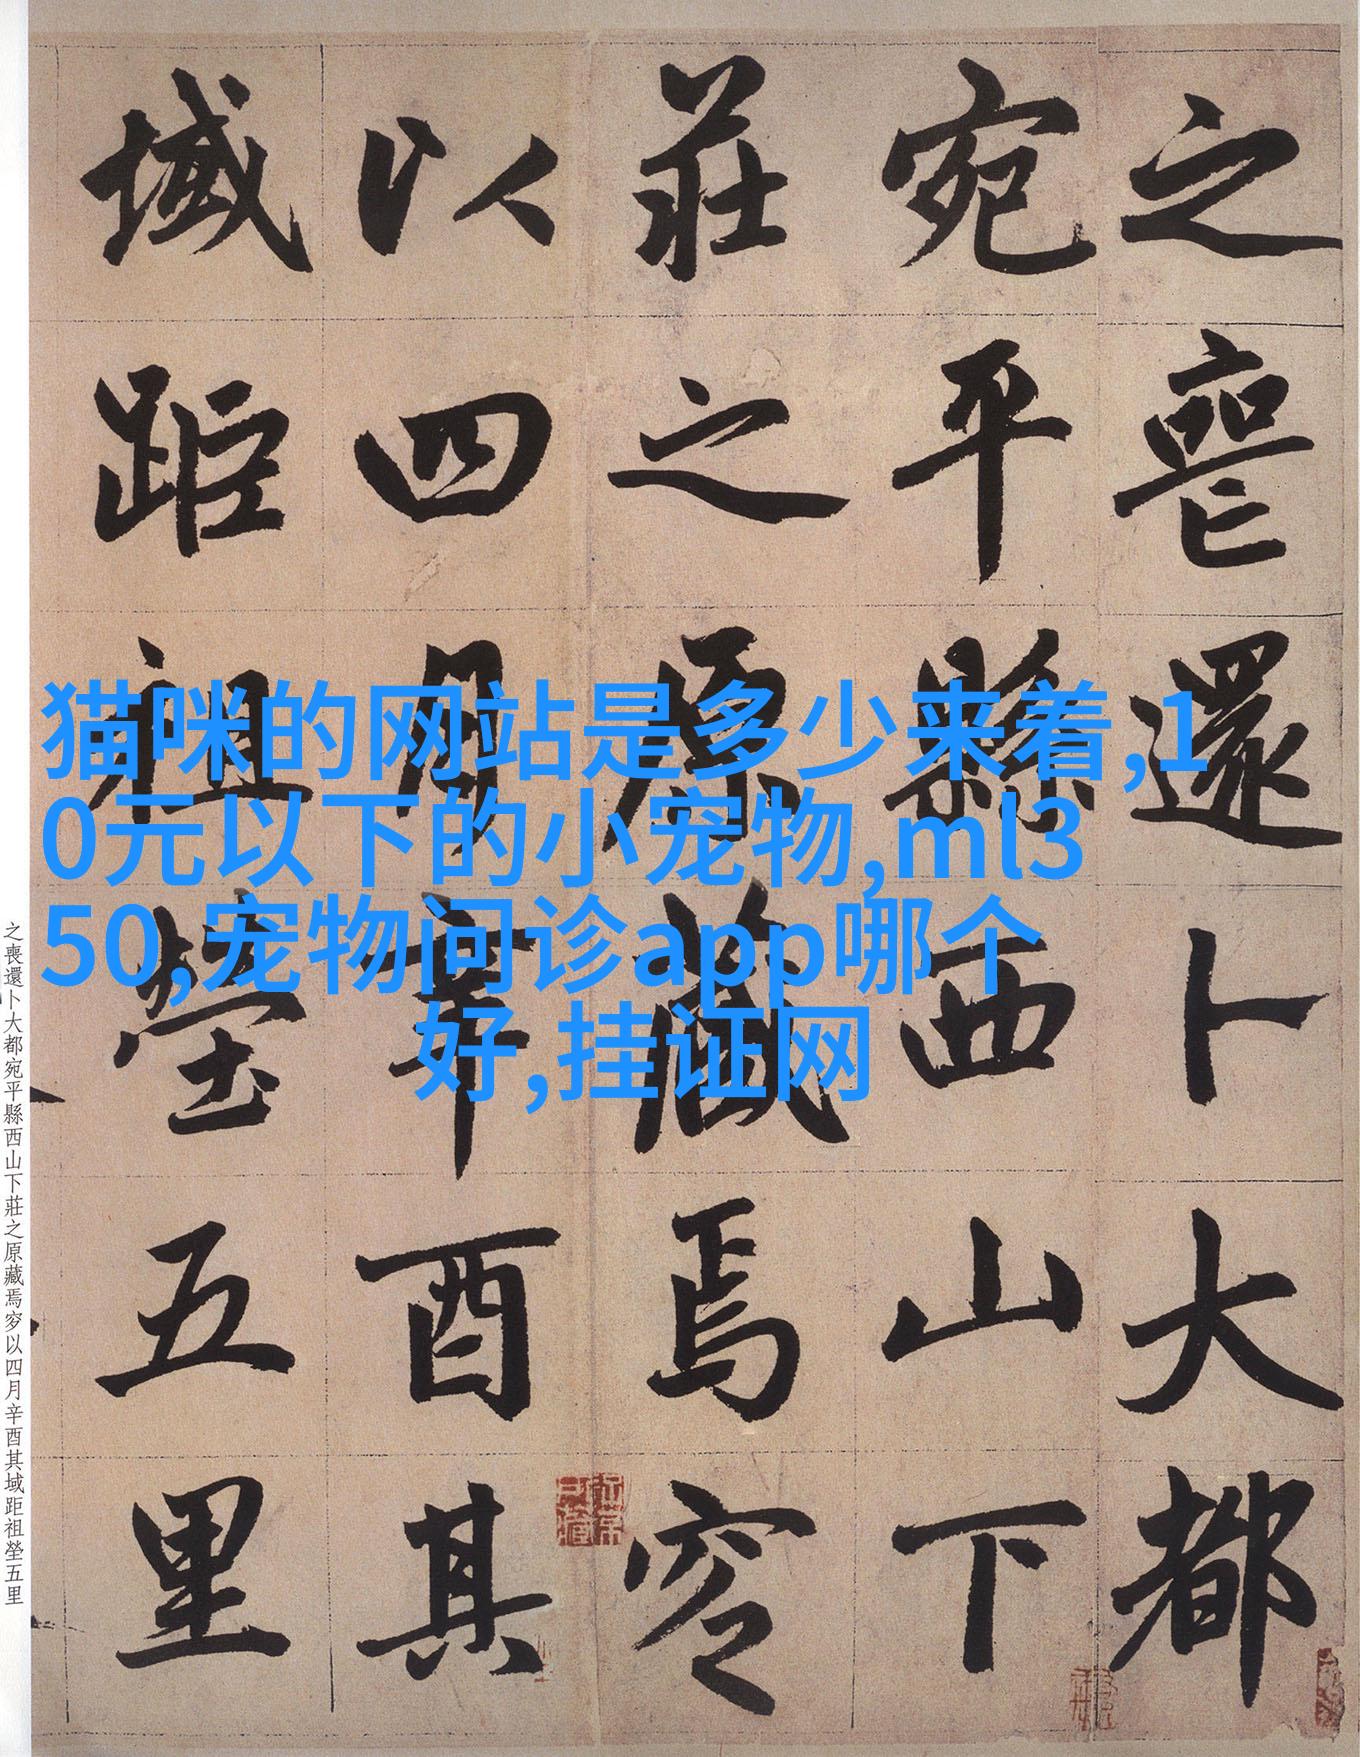 之喪還卜大都
宛平縣西山下
莊之原藏焉穸
以四月辛酉其
域距祖塋五里
猫咪的网站是多少来着,1
0元以下的小宠物,ml3
50,宠物问诊app哪个
好,挂证网
之喪還卜大都宛平縣西山下莊之原藏焉穸以四月辛酉其域距祖塋五里